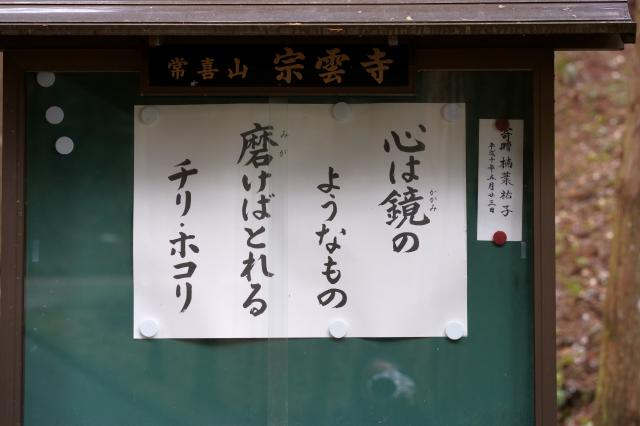 常喜山 宗雲寺
心は鏡の
かがみ
ようなもの
磨けばとれる
みが
チリ・ホコリ
寄贈 楠葉祐子
平成十年五月廿三日